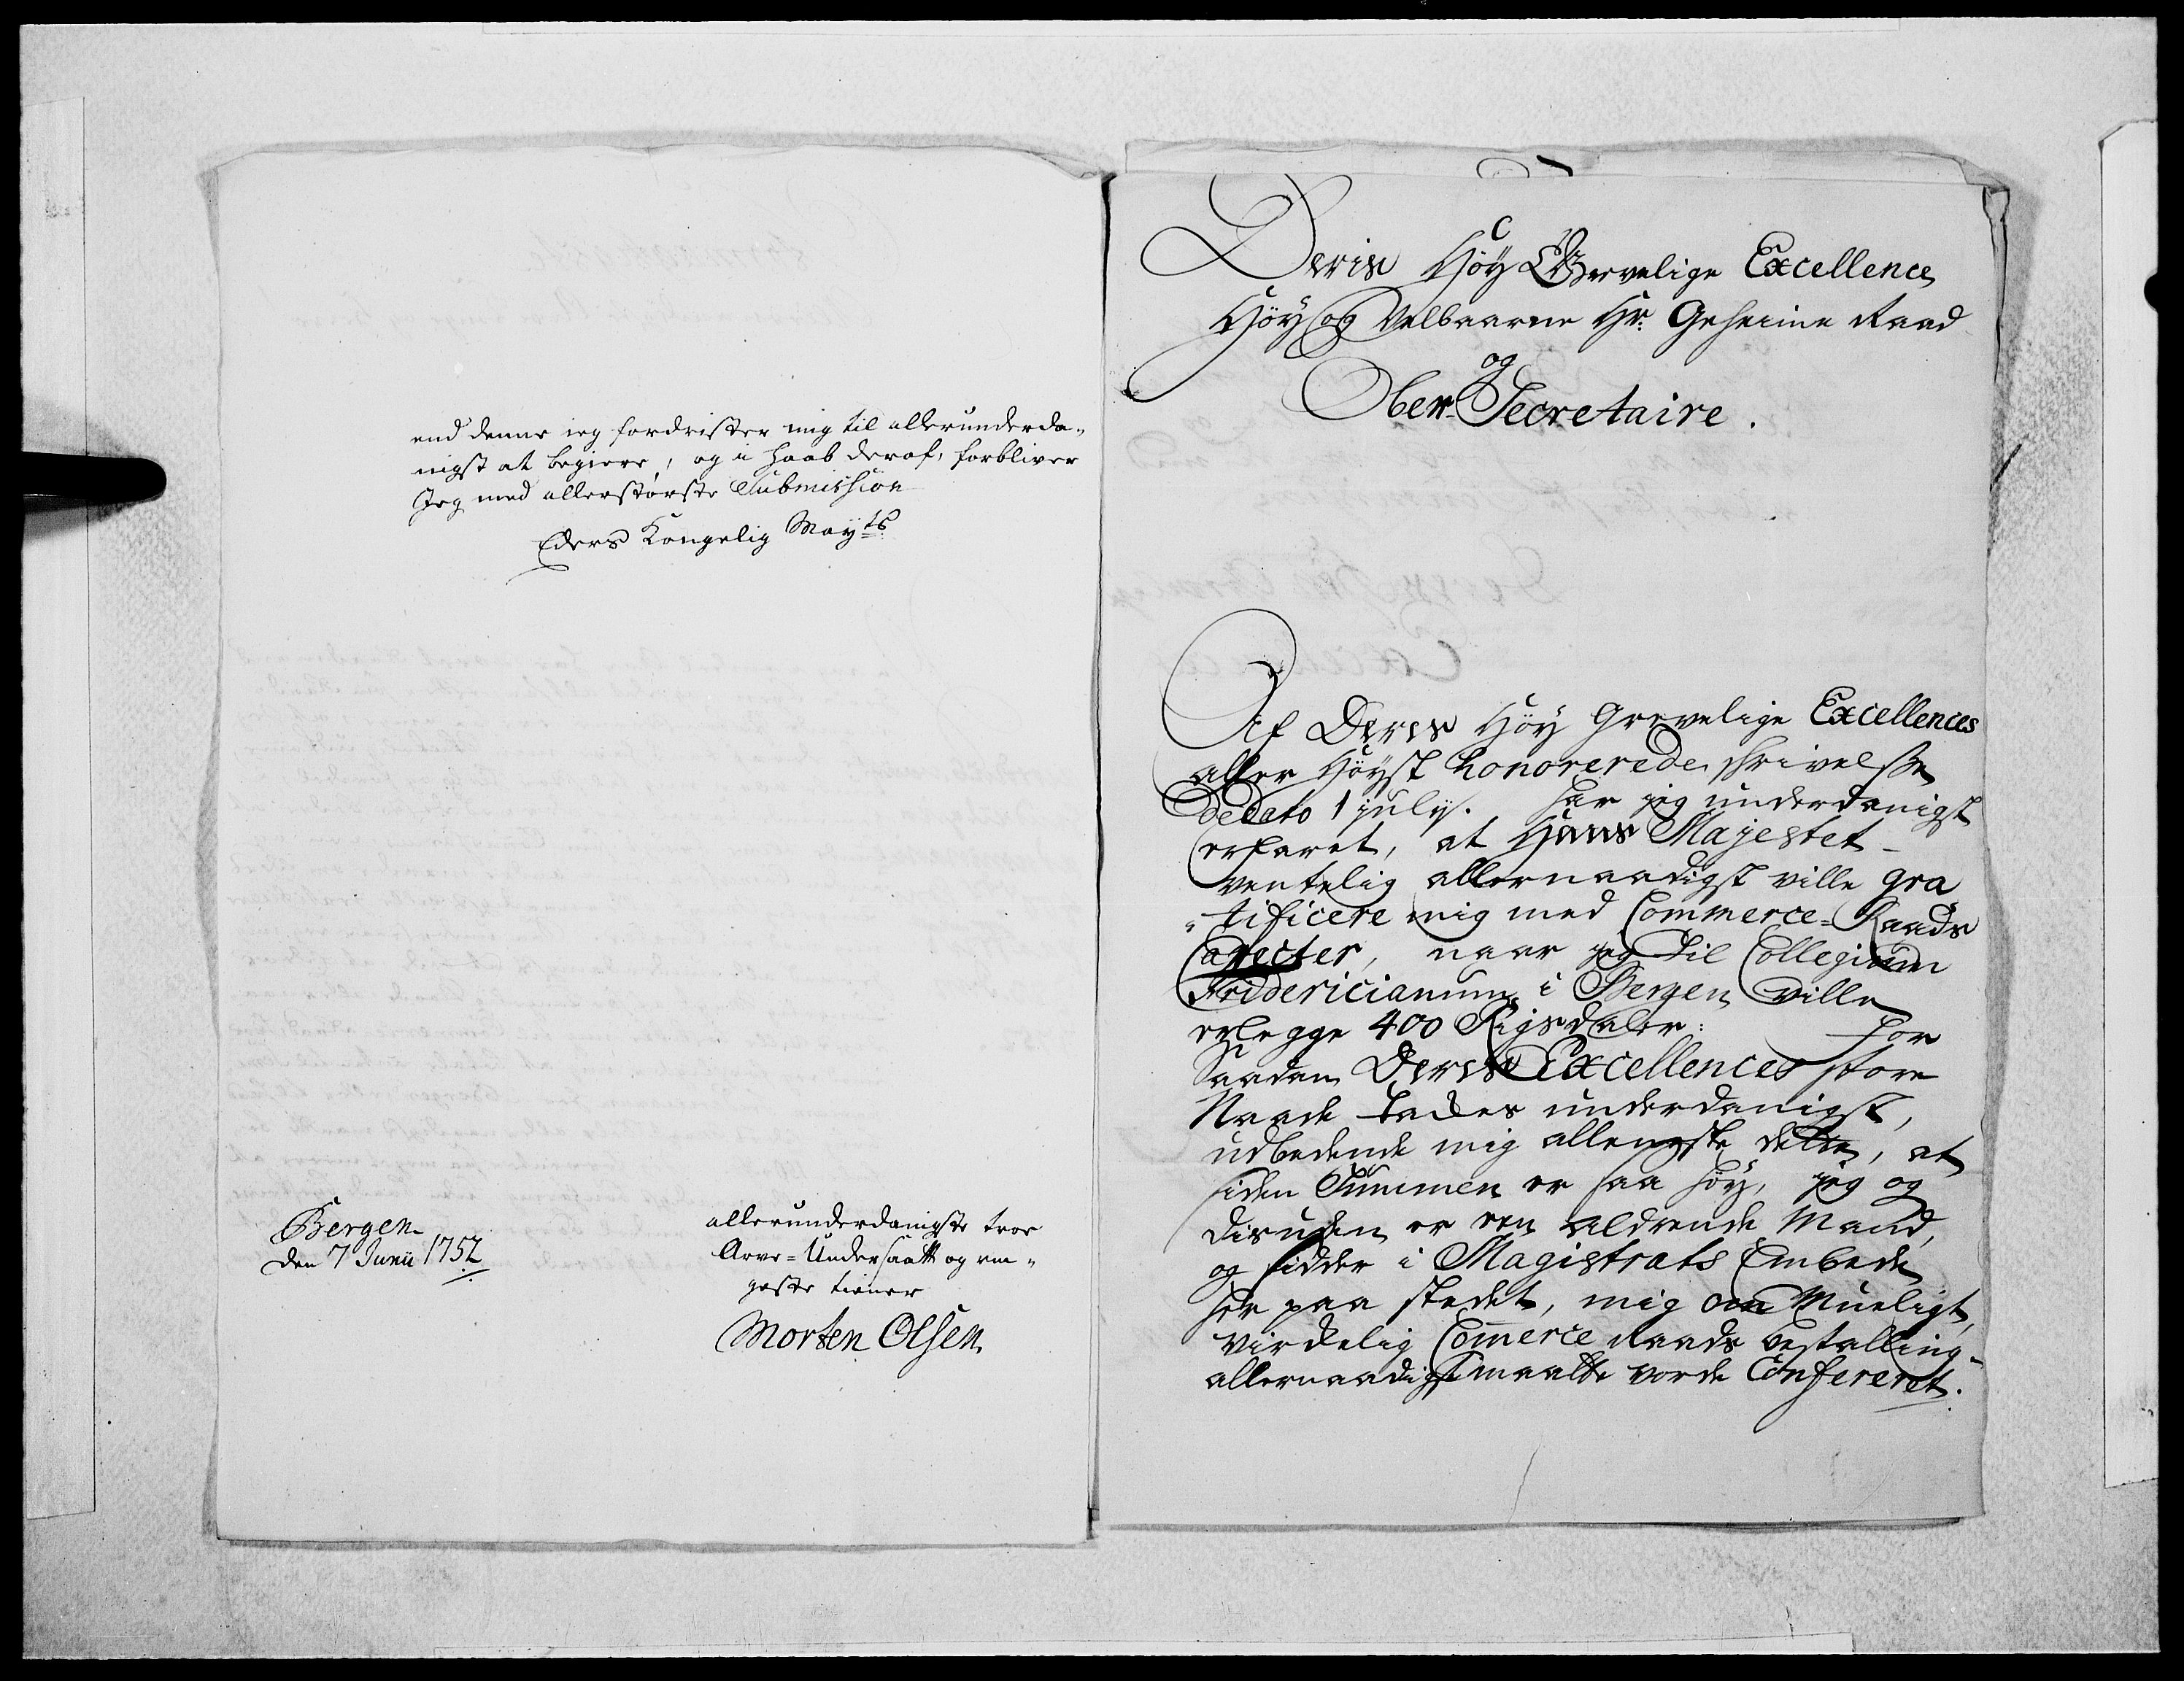 end denne ieg fordrister mig til allerunderda-
nigst at begiere, og i Haab deraf, forbliver
Jeg med allerstørste Submission
Eders Kongelig Mayts
Bergen
den 7 Junii 1752
allerunderdanigste troe
Arve-Undersaatt og rin-
geste tiener
Morten Olsen
Deris Høy Grevelige Excellence
Høy og Velbaarne Hr. Geheime Raad
og
Ober-Secretaire.
Af Deres Høy Grevelige Excellences
aller Høyst honorerede skrivelse
dedato 1 july. har jeg underdanigst
erfaret, at Hans Majestet
ventelig allernaadigst ville gra
tificere mig med Commerce-Raads
Caracter, naar jeg til Collegium
Fridericianum i Bergen ville
erlegge 400 Rigsdaler: for
Saadan Deres Excellences store
Naade takkes underdanigst,
udbedende mig alleneste dette, at
siden Summen er saa høy, jeg og
desuden er een aldrende Mand,
og sidder i Magistrats Embede
her paa stedet, mig om Mueligt,
virkelig Commerce Raads bestalling
allernaadigst maatte vorde Confereret.